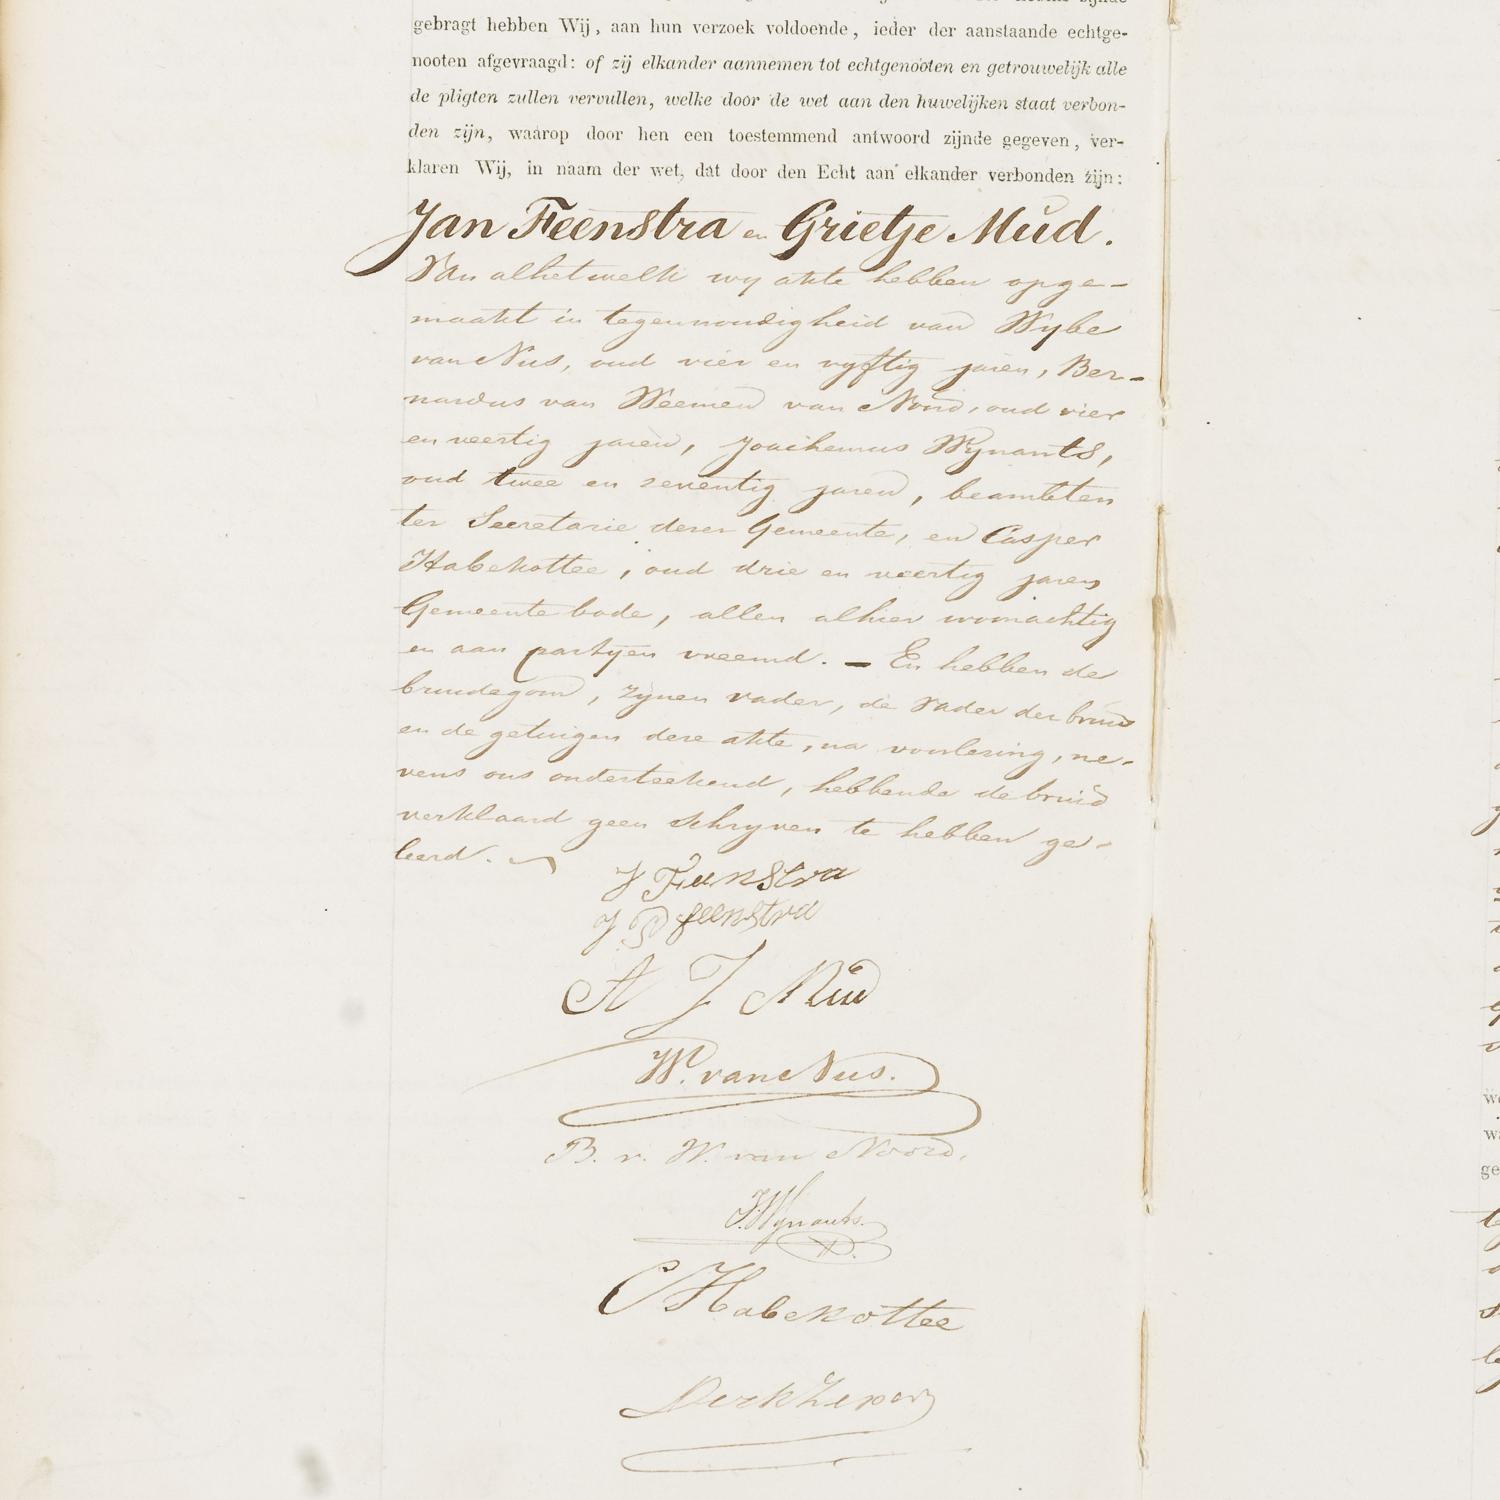 gebragt hebben Wij, aan hun verzoek voldoende, ieder der aanstaande echtge-
nooten afgevraagd: of zij elkander aannemen tot echtgenooten en getrouwelijk alle
de pligten zullen vervullen, welke door de wet aan den huwelijken staat verbon-
den zijn, waarop door hen een toestemmend antwoord zijnde gegeven, ver-
klaren Wij, in naam der wet, dat door den Echt aan elkander verbonden zijn:
Jan Feenstra en Grietje Mud.
Van al hetwelk wij akte hebben opge-
maakt in tegenwoordigheid van Wybe
van Nus, oud vier en vyftig jaren, Ber-
nardus van Weemen van Noord, oud vier
en veertig jaren, Joachemus Wynants,
oud twee en zeventig jaren, beambten
ter Secretarie dezer Gemeente, en Casper
Habekottee, oud drie en veertig jaren
Gemeentebode, allen alhier woonachtig
en aan partyen vreemd. — En hebben de
bruidegom, zynen vader, de vader der bruid
en de getuigen deze akte, na voorlezing, ne-
vens ons onderteekend, hebbende de bruid
verklaard geen schryven te hebben ge-
leerd.
J Feenstra
J P feenstra
A J Mud
W. van Nus.
B. v. W. van Noord.
J. Wynants.
C Habekottee
Dirk